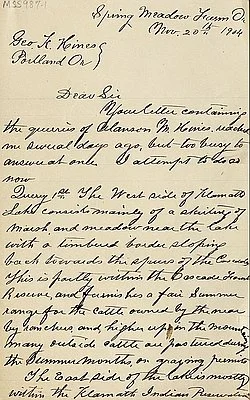 MSS987-1
Spring Meadow Farm O
Nov. 20th 1904
Geo H. Himes
Portland Or
Dear Sir
Your letter containing
the queries of Clanson M. Hines, reached
me several days ago, but too busy to
answer at once I attempt to do so
now
Query 1st. The West side of Klamath
Lake consists mainly of a skirting of
Marsh and meadow near the lake
with a timbered border sloping
back towards the spurs of the Cascades
This is partly within the Cascade Forest
Reserve, and furnishes a fair Summer
range for the cattle owned by the near
by ranchers and higher up in the mount
many outside cattle are pastured during
the Summer months, on grazing permits
The East side of the lake is mostly
within the Klamath Indian Reservation